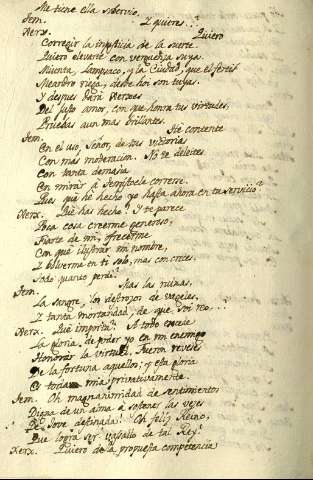 Me tiene ella sobervio.
Tem. Y quieres..?
Xerx. Quiero
Corregir la injusticia de la suerte
Quiero elevarte con verguenza suya.
Miunta, Lampsaco, y la Ciudad, que el fertil
Meandro riega, desde hoi son tuyas.
Y despues dará Xerxes
Del justo amor, con que honra tus virtudes,
Pruebas aun mas brillantes.
Tem. Te contente
En el uso, Señor, de tus victorias
Con mas moderacion. No te deleites
Con tanta demasia
En mirar à Temistocle correrse.
Pues què he hecho yo hasta ahora en tu servicio?
Xerx. Què has hecho? Y te parece
Poca cosa creerme generoso,
Fiarte de mi, ofrecerme
Con què ilustrar mi nombre,
Y bolverme en ti solo, mas con creces
Todo quanto perdì?
Tem. Mas las ruinas,
La sangre, los destrozos de
Y tanta mortandad, de que soi reo...?
Xerx. Què importa? A todo excede
La gloria, de poder yo en mi enemigo
Honrar la virtud. Fueron reveses
De la fortuna aquellos; y esta gloria
Es toda mia privativamente.
Tem. Oh magnanimidad de sentimientos
Digna de un alma à sostener las vezes
De Jove destinada! Oh feliz Reino,
Que logra ser vasallo de tal Rey!
Xerx. Quiero de la propuesta competencia